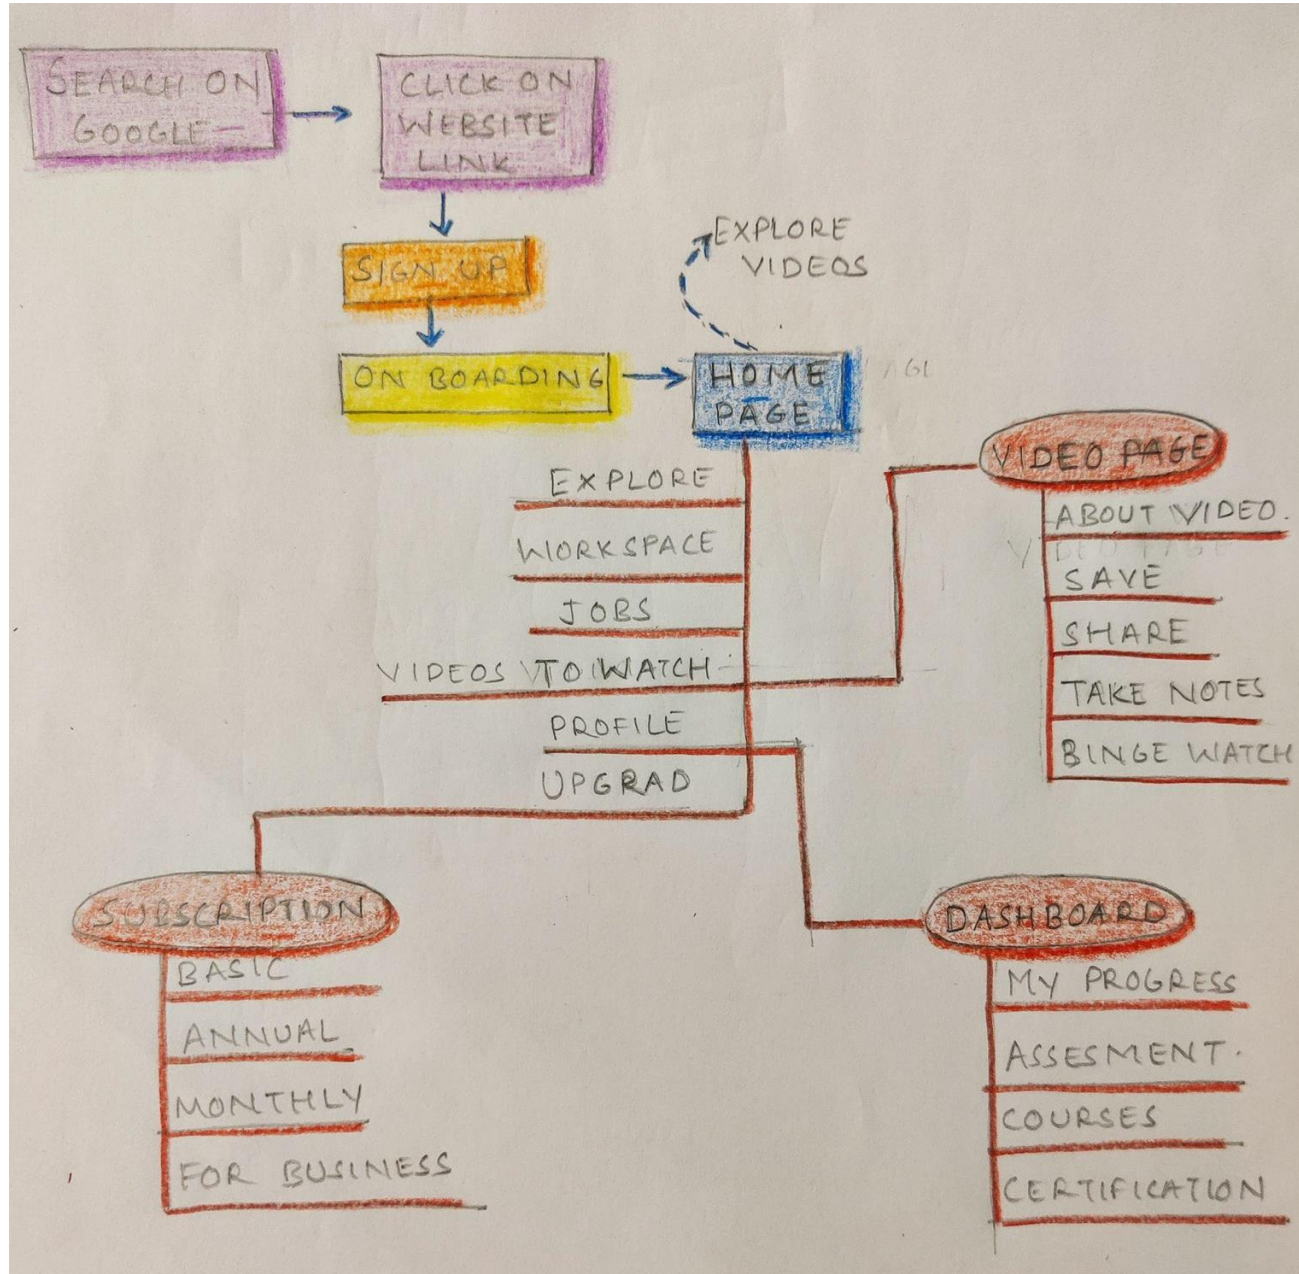 SEARCH ON
GOOGLE
CLICK ON
WEBSITE
LINK
SIGN UP
EXPLORE
VIDEOS
ON BOARDING
HOME
PAGE
EXPLORE
WORKSPACE
JOBS
VIDEOS TO WATCH
PROFILE
UPGRAD
VIDEO PAGE
ABOUT VIDEO.
VIDEO PAGE
SAVE
SHARE
TAKE NOTES
BINGE WATCH
SUBSCRIPTION
BASIC
ANNUAL
MONTHLY
FOR BUSINESS
DASHBOARD
MY PROGRESS
ASSESMENT.
COURSES
CERTIFICATION